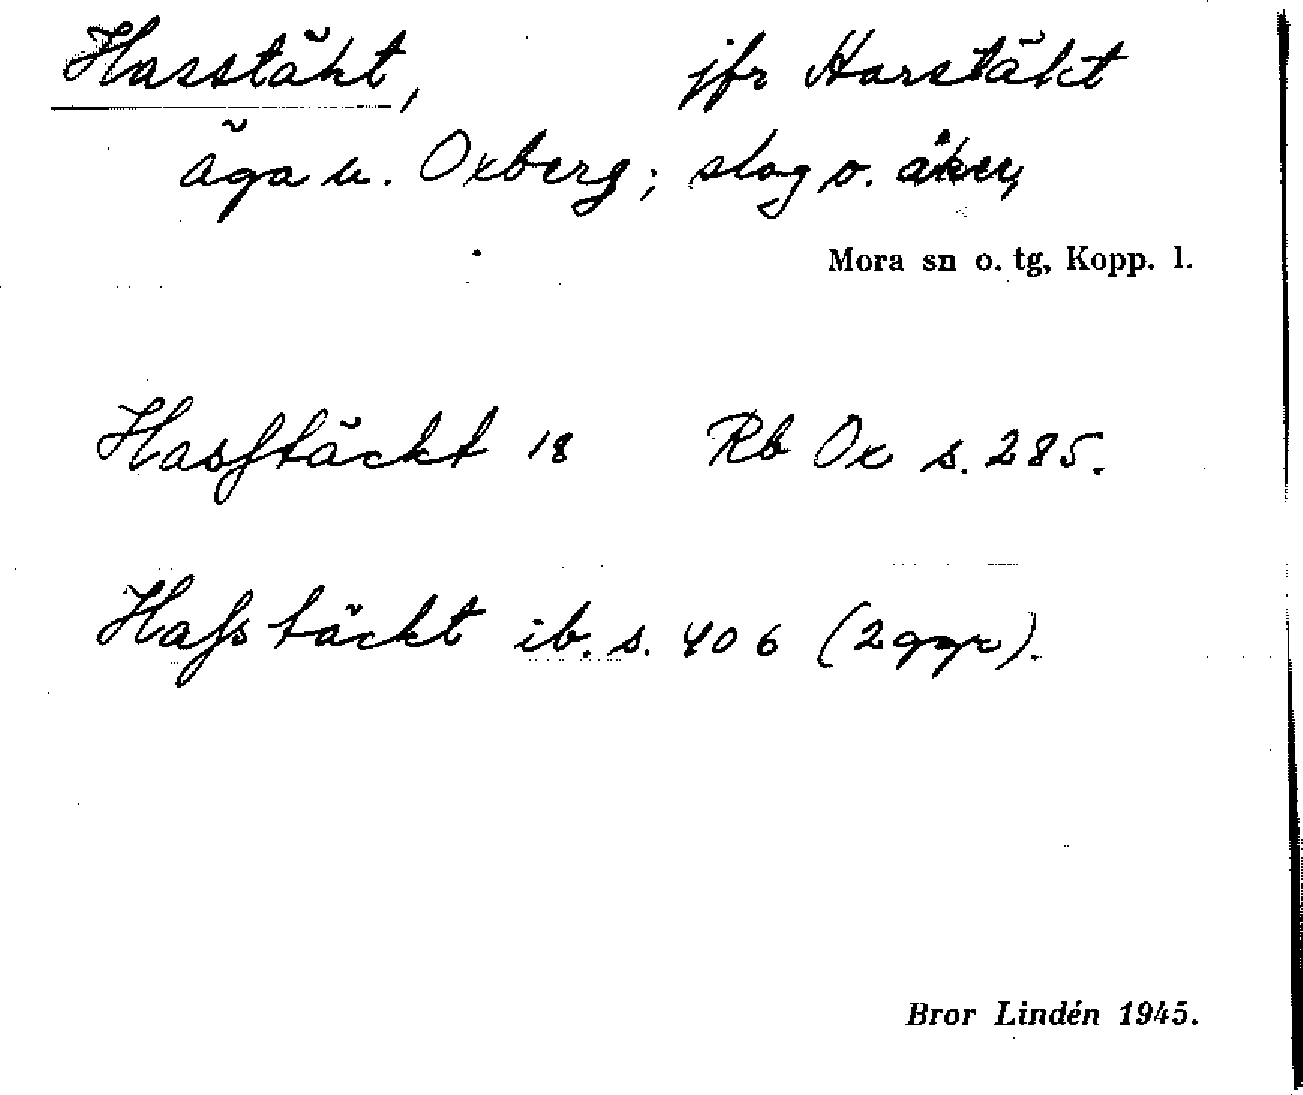 Hasstäkt, jfr Harstäkt
äga u. Oxberg; slog o. åker,
Mora sn o. tg, Kopp. l.
Hasstäckt 18 Rb Ox s. 285.
Hasstäckt ib. s. 406 (2 ggr).
Bror Lindén 1945.